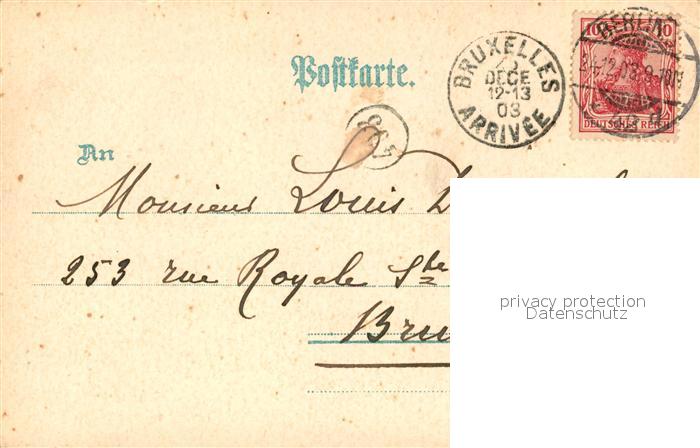 Postkarte.
BRUXELLES
DECE
12-13
03
ARRIVÉE
10 10
BERLIN
DEUTSCHES REICH
An
Monsieur Louis
253 rue Royale Ste
privacy protection
Datenschutz